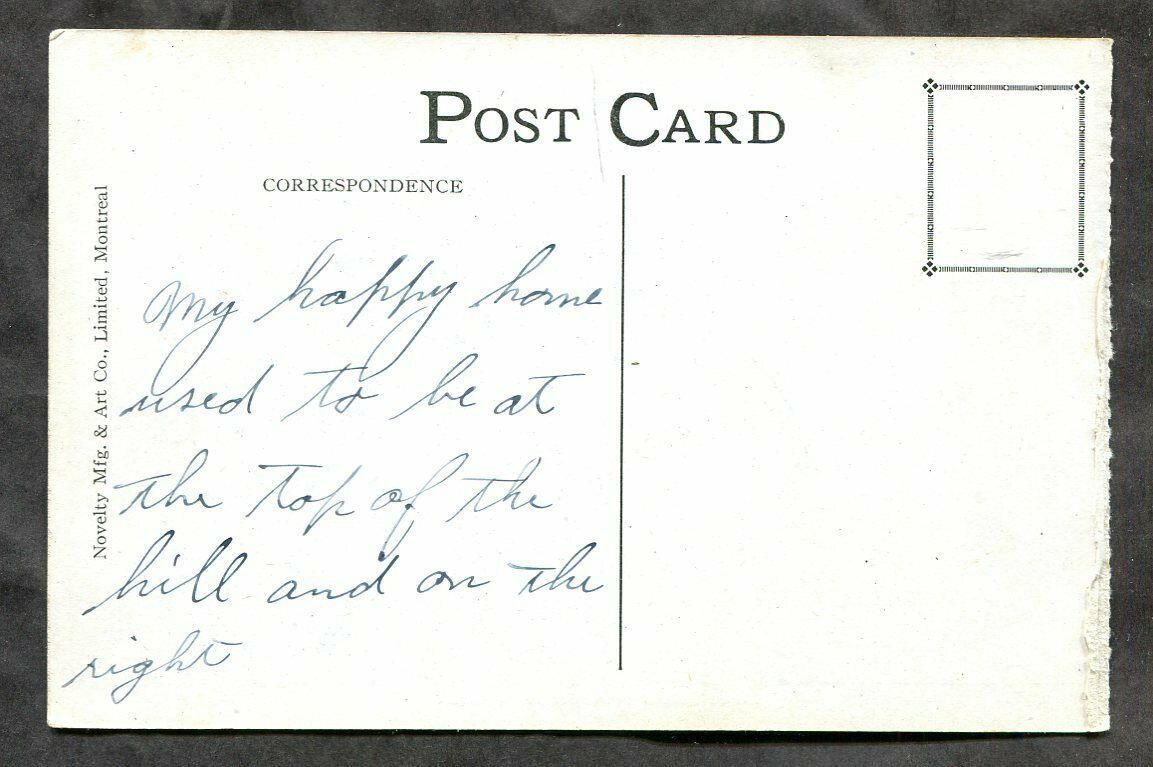 POST CARD
CORRESPONDENCE
Novelty Mfg. & Art Co., Limited, Montreal
My happy home
used to be at
the top of the
hill and on the
right